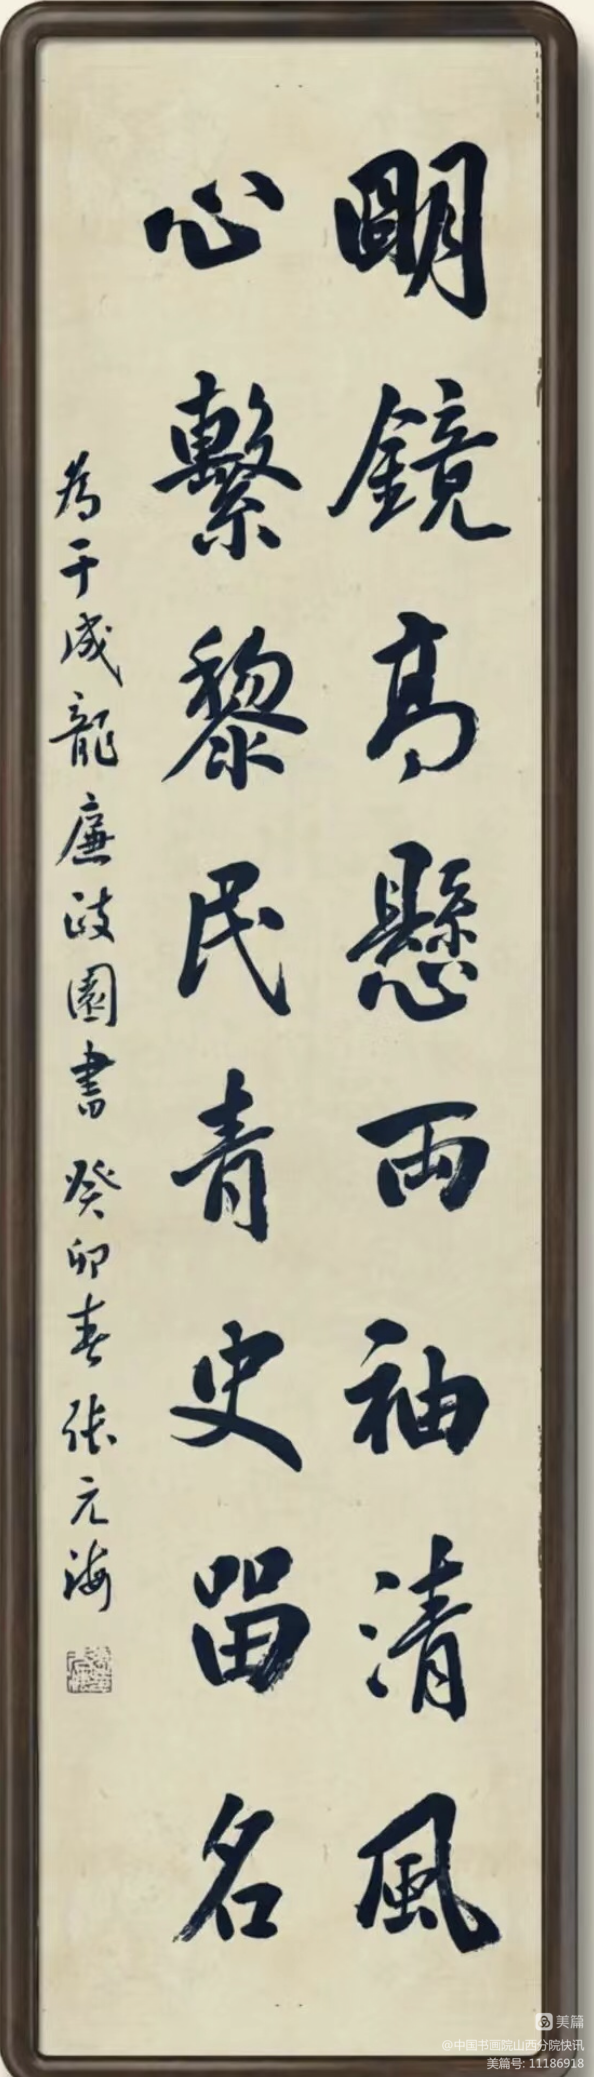 明鏡高懸兩袖清風
心繫黎民青史留名
為于成龍廉政園書 癸卯春 張元海
美篇
@中国书画院山西分院快讯
美篇号: 11186918